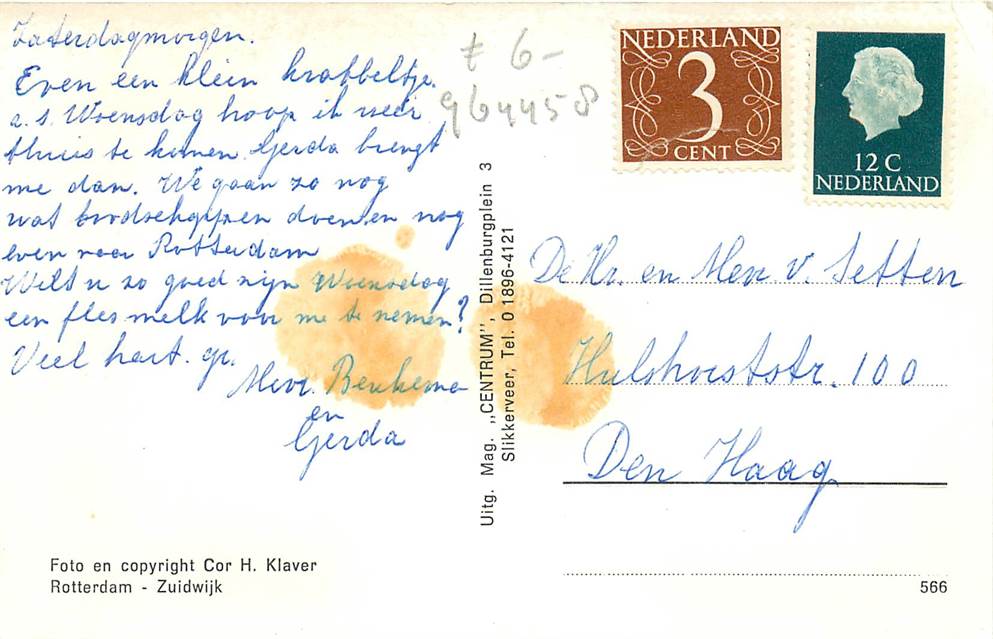 Zaterdagmorgen.
Even een klein krabbeltje.
a.s. Woensdag hoop ik weer
thuis te komen. Gerda brengt
me dan. We gaan zo nog
wat boodschappen doen en nog
even naar Rotterdam
Wilt u zo goed zijn Woensdag
een fles melk voor me te nemen?
Veel hart. gr.
Mevr. Beukema
en
Gerda
£ 6-
964458
NEDERLAND
3
CENT
12 C
NEDERLAND
De Hr. en Mevr. v. Setten
Hulshorststr. 100
Den Haag
Uitg. Mag. „CENTRUM”, Dillenburgplein 3
Slikkerveer, Tel. 0 1896-4121
Foto en copyright Cor H. Klaver
Rotterdam - Zuidwijk
566